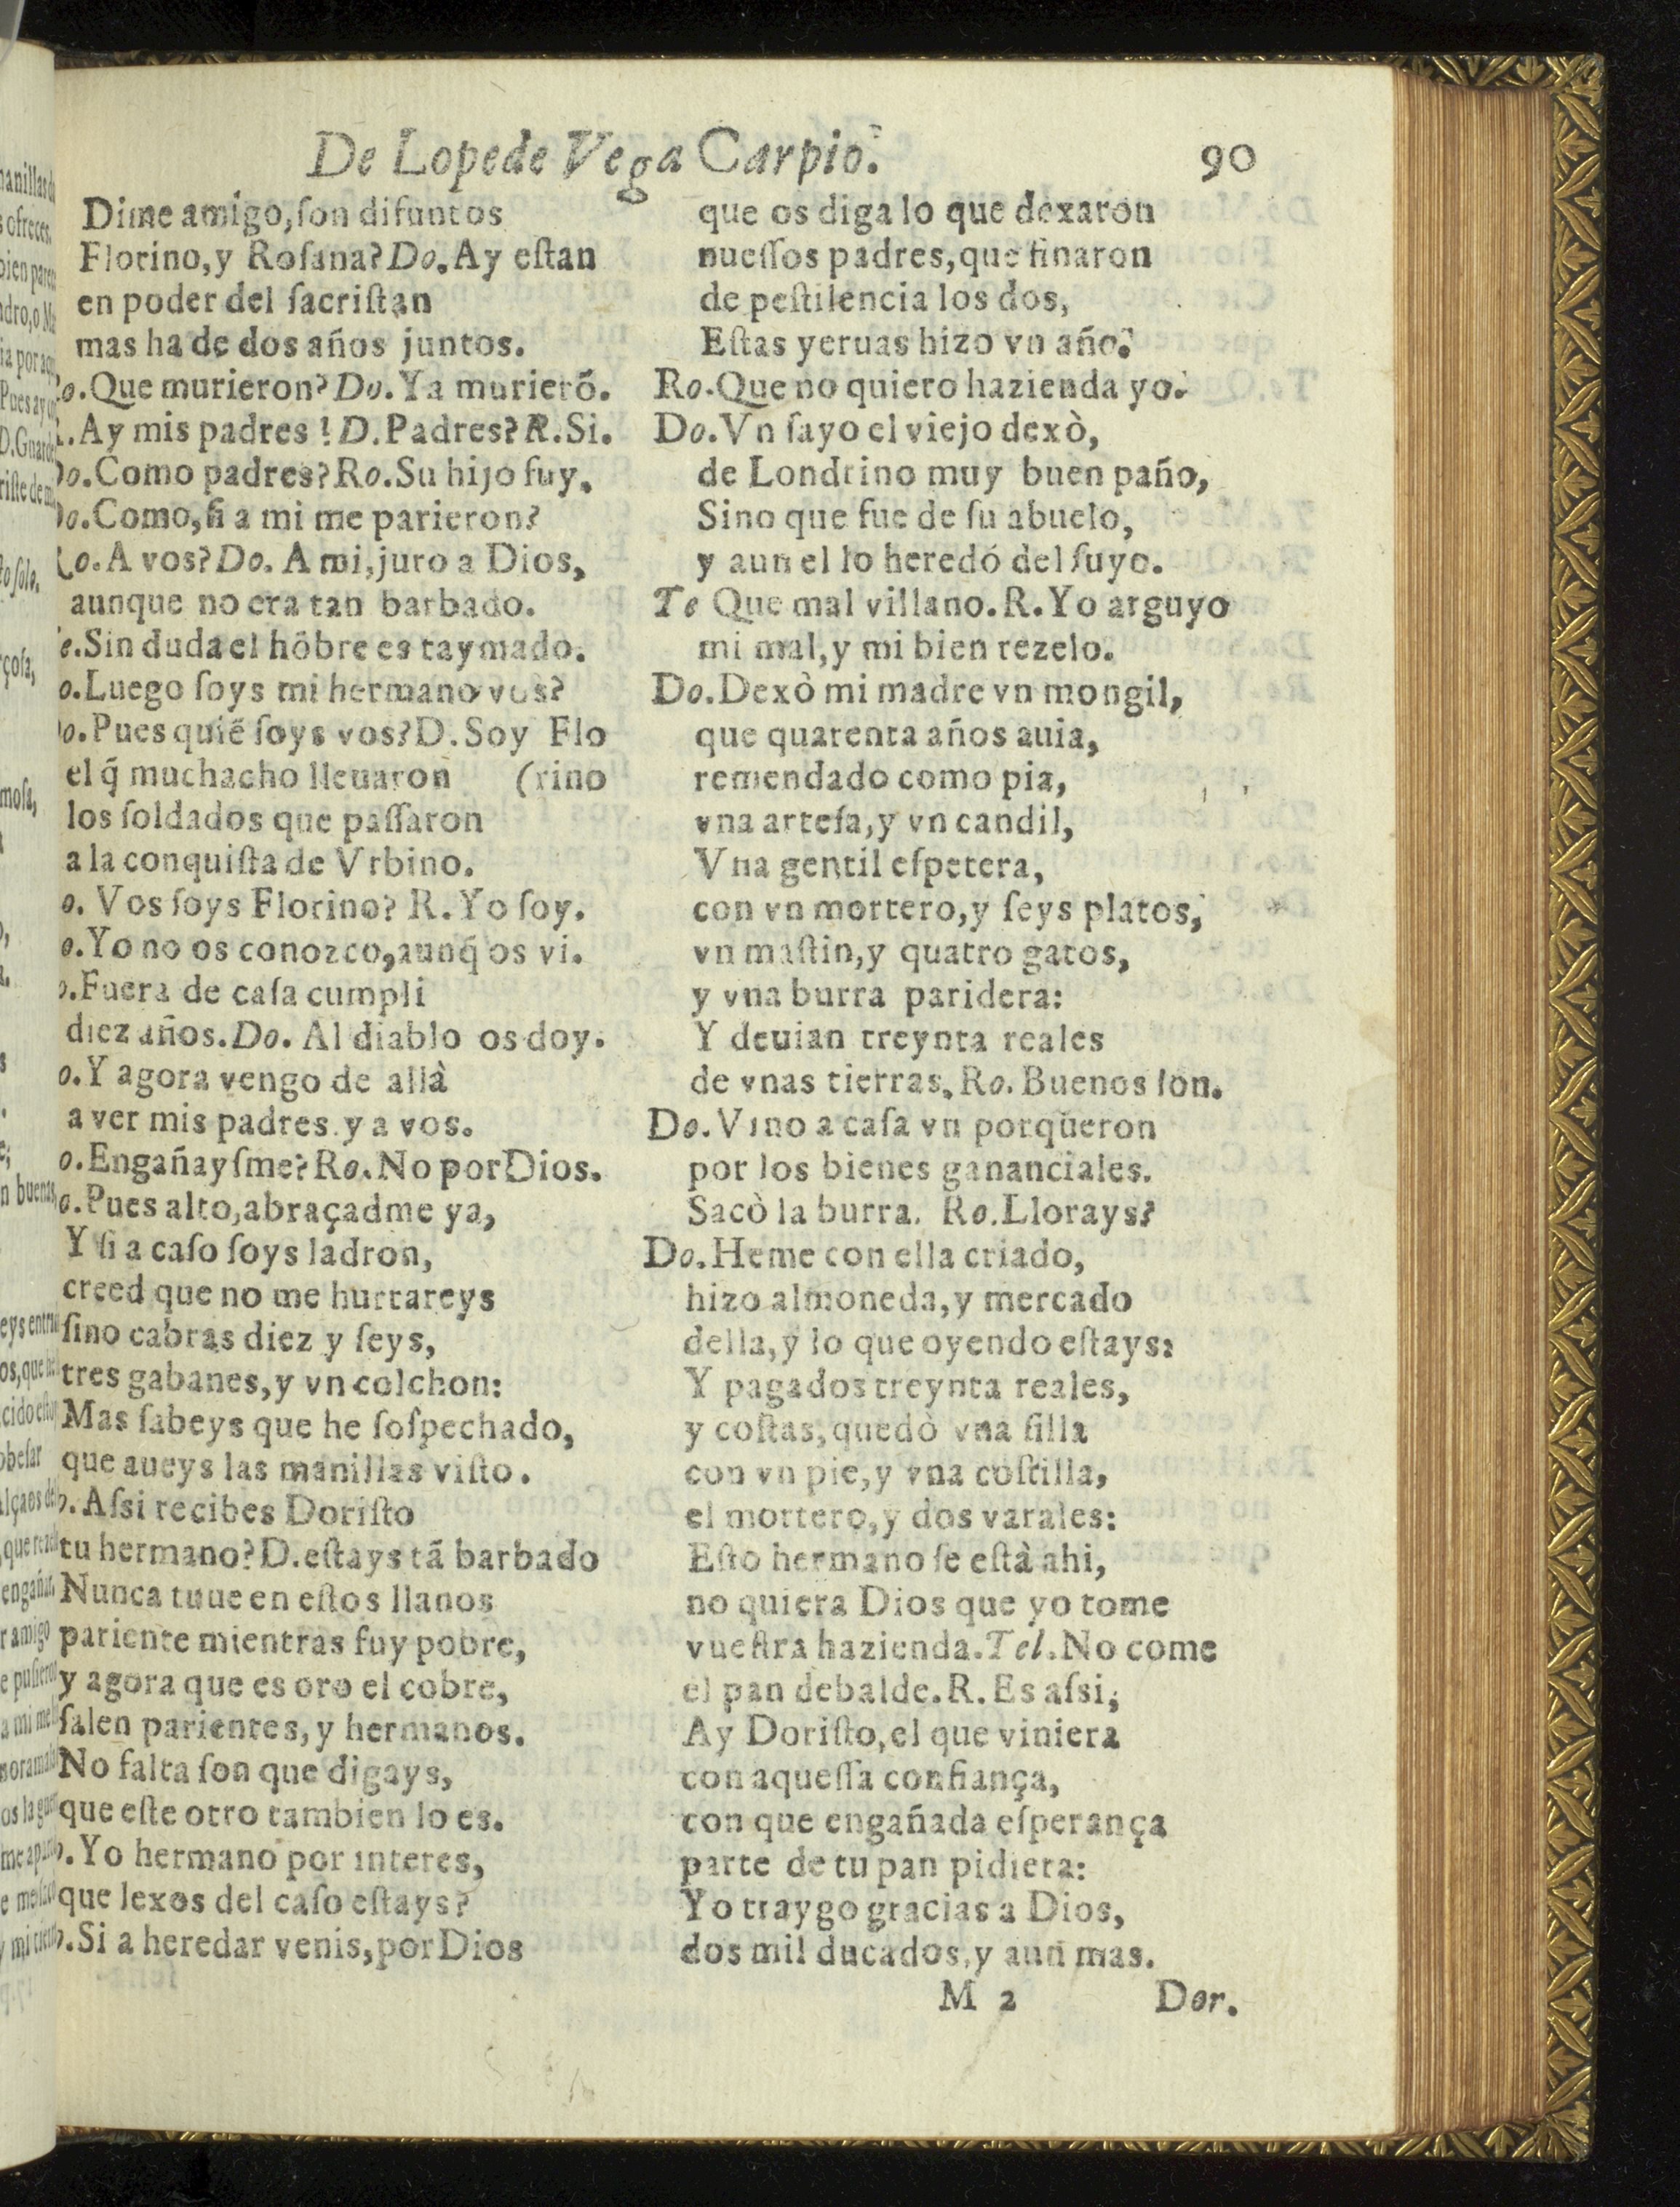 De Lope de Vega Carpio.
90
Dime amigo, ſon difuntos
Florino, y Roſana? Do. Ay eſtan
en poder del ſacriſtan
mas ha de dos años juntos.
o. Que murieron? Do. Ya murierõ.
. Ay mis padres! D. Padres? R. Si.
Do. Como padres? Ro. Su hijo fuy.
Do. Como, ſi a mi me parieron?
Ro. A vos? Do. A mi, juro a Dios,
aunque no era tan barbado.
e. Sin duda el hõbre es taymado.
o. Luego ſoys mi hermano vos?
Do. Pues quiẽ ſoys vos? D. Soy Flo
el q̃ muchacho lleuaron (rino
los ſoldados que paſſaron
a la conquiſta de Vrbino.
o. Vos ſoys Florino? R. Yo ſoy.
o. Yo no os conozco, aunq̃ os vi.
o. Fuera de caſa cumpli
diez años. Do. Al diablo os doy.
o. Y agora vengo de allà
a ver mis padres. y a vos.
o. Engañayſme? Ro. No por Dios.
o. Pues alto, abraçadme ya,
Y ſi a caſo ſoys ladron,
creed que no me hurtareys
ſino cabras diez y ſeys,
tres gabanes, y vn colchon:
Mas ſabeys que he ſoſpechado,
que aueys las manillas viſto.
o. Aſsi recibes Doriſto
tu hermano? D. eſtays tã barbado
Nunca tuue en eſtos llanos
pariente mientras fuy pobre,
y agora que es oro el cobre,
ſalen parientes, y hermanos.
No falta ſon que digays,
que eſte otro tambien lo es.
o. Yo hermano por interes,
que lexos del caſo eſtays?
o. Si a heredar venis, por Dios
que os diga lo que dexaron
nueſſos padres, que finaron
de peſtilencia los dos,
Eſtas yeruas hizo vn año.
Ro. Que no quiero hazienda yo.
Do. Vn ſayo el viejo dexò,
de Londrino muy buen paño,
Sino que fue de ſu abuelo,
y aun el lo heredó del ſuyo.
Te Que mal villano. R. Yo arguyo
mi mal, y mi bien rezelo.
Do. Dexò mi madre vn mongil,
que quarenta años auia,
remendado como pia,
vna arteſa, y vn candil,
Vna gentil eſpetera,
con vn mortero, y ſeys platos,
vn maſtin, y quatro gatos,
y vna burra paridera:
Y deuian treynta reales
de vnas tierras. Ro. Buenos ſon.
Do. Vino a caſa vn porqueron
por los bienes gananciales.
Sacò la burra. Ro. Llorays?
Do. Heme con ella criado,
hizo almoneda, y mercado
della, y lo que oyendo eſtays:
Y pagados treynta reales,
y coſtas, quedò vna ſilla
con vn pie, y vna coſtilla,
el mortero, y dos varales:
Eſto hermano ſe eſtà ahi,
no quiera Dios que yo tome
vueſtra hazienda. Tel. No come
el pan debalde. R. Es aſsi,
Ay Doriſto, el que viniera
con aqueſſa confiança,
con que engañada eſperança
parte de tu pan pidiera:
Yo traygo gracias a Dios,
dos mil ducados, y aun mas.
M 2 Dor.